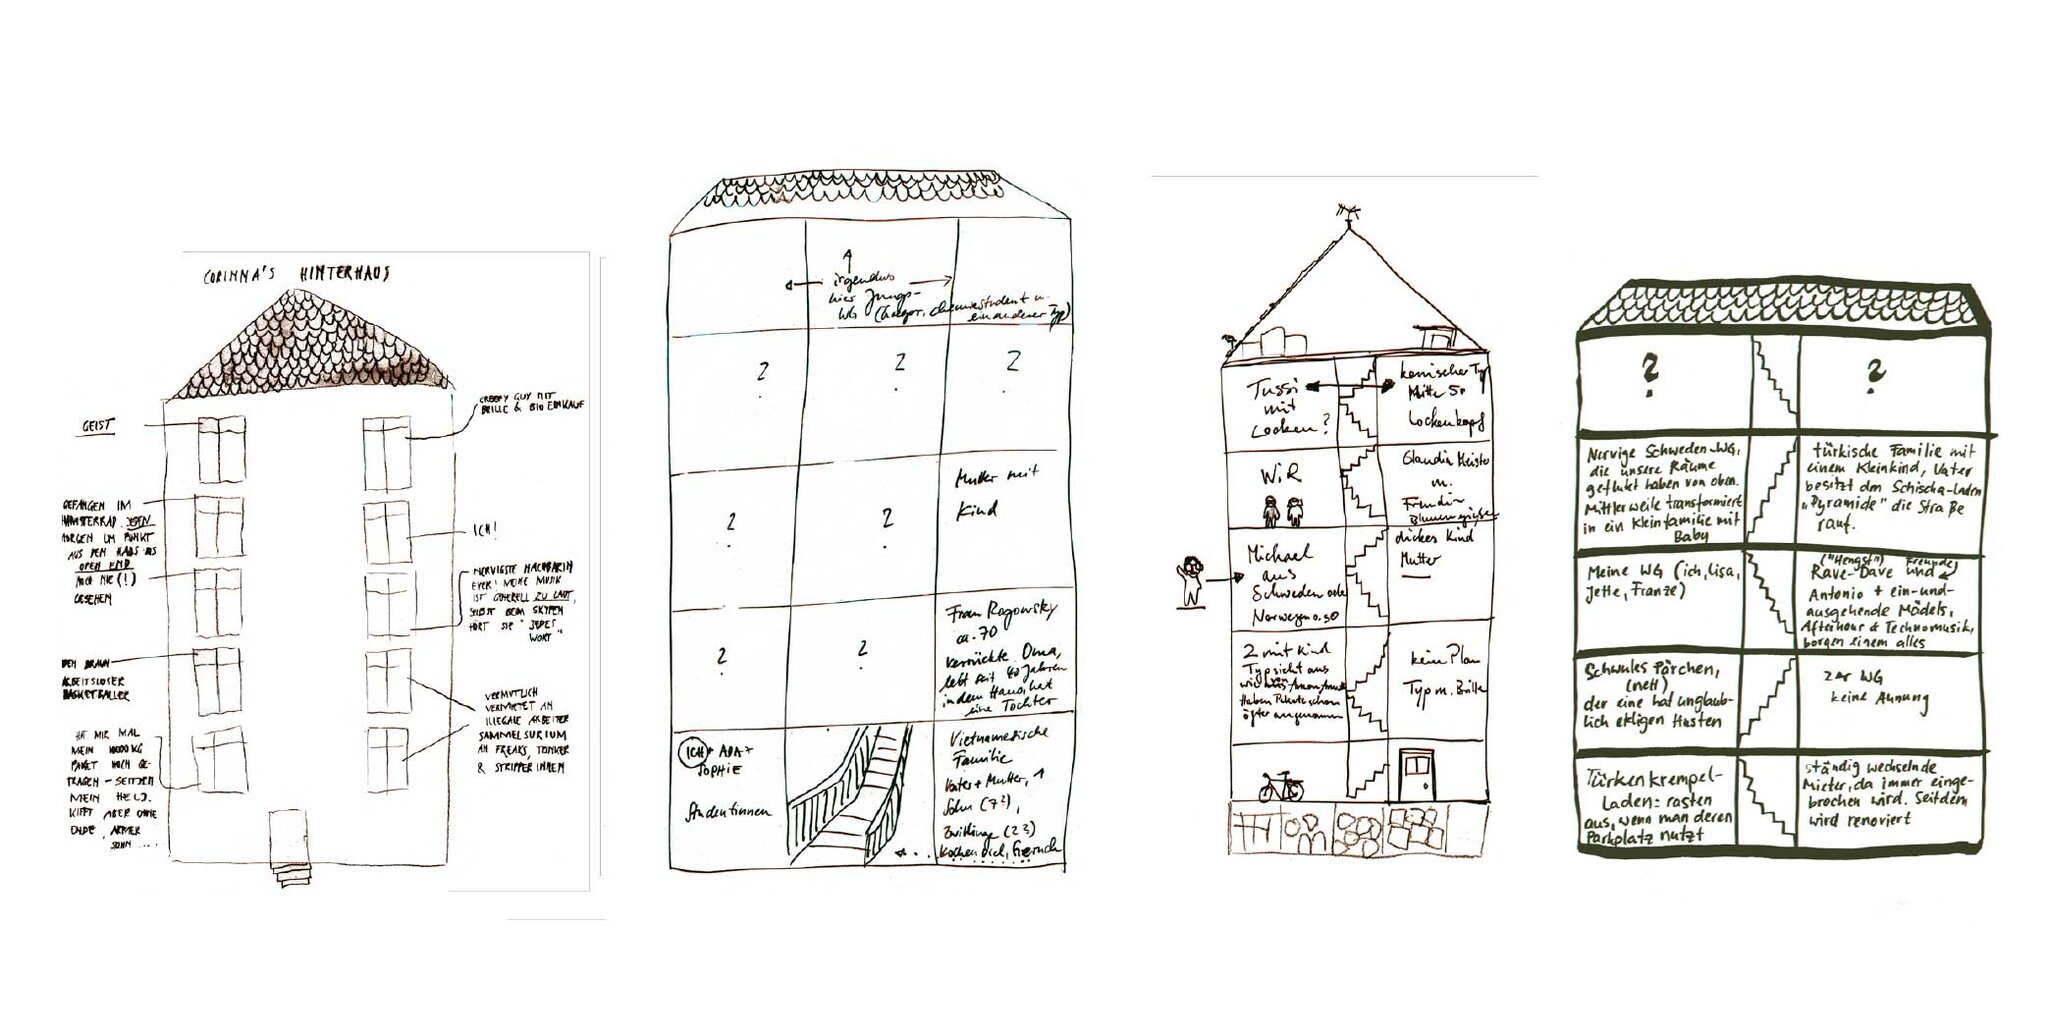 CORINNA'S HINTERHAUS
GEIST
CREEPY GUY MIT
BRILLE & BIO EINKAUF
GEFANGEN IM
HAMSTERRAD. JEDEN
MORGEN UM PUNKT
AUS DEM HAUS BIS
OPEN END
NOCH NIE (!)
GESEHEN
ICH!
NERVIGSTE NACHBARIN
EVER! MEINE MUSIK
IST GENERELL ZU LAUT,
SELBST BEIM SKYPEN
HÖRT SIE "JEDES
WORT"
BEN BRAUN
ARBEITSLOSER
BASKETBALLER
VERMUTLICH
VERMIETET AN
ILLEGALE ARBEITER
SAMMELSURIUM
AN FREAKS, TRINKER
& STRIPPERINNEN
HAT MIR MAL
MEIN 10000KG
PAKET HOCH GE-
TRAGEN - SEITDEM
MEIN HELD.
KIFFT ABER OHNE
ENDE, ARMER
SOHN ....
irgendwo
hier Jungs-
WG (Gregor, Chemiestudent u.
ein anderer Typ)
? ? ?
? ?
Mutter mit
Kind
? ?
Frau Rogowsky
ca. 70
verrückte Oma,
lebt seit 40 Jahren
in dem Haus, hat
eine Tochter
ICH + ADA +
SOPHIE
Studentinnen
Vietnamesische
Familie
Vater + Mutter, 1
Sohn (7?),
Zwillinge (2?)
Kochen viel, Geruch
Tussi
mit
Locken?
komischer Typ
Mitte 50
Lockenkopf
WiR
Claudia Meister
u.
Freundin
Blumengießen
Michael
aus
Schweden oder
Norwegen o. so
dickes Kind
Mutter
2 mit Kind
Typ sieht aus
wie
Haben Pakete schon
öfter angenommen
kein Plan
Typ m. Brille
? ?
Nervige Schweden-WG,
die unsere Räume
geflutet haben von oben.
Mittlerweile transformiert
in ein Kleinfamilie mit
Baby
türkische Familie mit
einem Kleinkind, Vater
besitzt den Schischa-Laden
"Pyramide" die Straße
rauf.
Meine WG (ich, Lisa,
Jette, Franze)
("Hengst") Freunde
Rave-Dave und
Antonio + ein-und-
ausgehende Mädels,
Afterhour & Technomusik,
borgen einem alles
Schwules Pärchen,
(nett)
der eine hat unglaub-
lich ekligen Husten
2er WG
keine Ahnung
Türkenkrempel-
Laden: rasten
aus, wenn man deren
Parkplatz nutzt
ständig wechselnde
Mieter, da immer einge-
brochen wird. Seitdem
wird renoviert